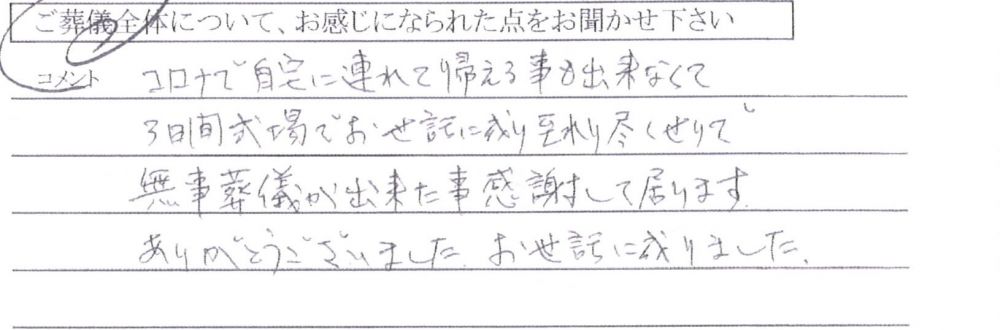 ご葬儀全体について、お感じになられた点をお聞かせ下さい
コメント コロナで自宅に連れて帰える事も出来なくて
3日間式場でお世話に成り至れり尽くせりで
無事葬儀が出来た事感謝して居ります
ありがとうございました。お世話に成りました。